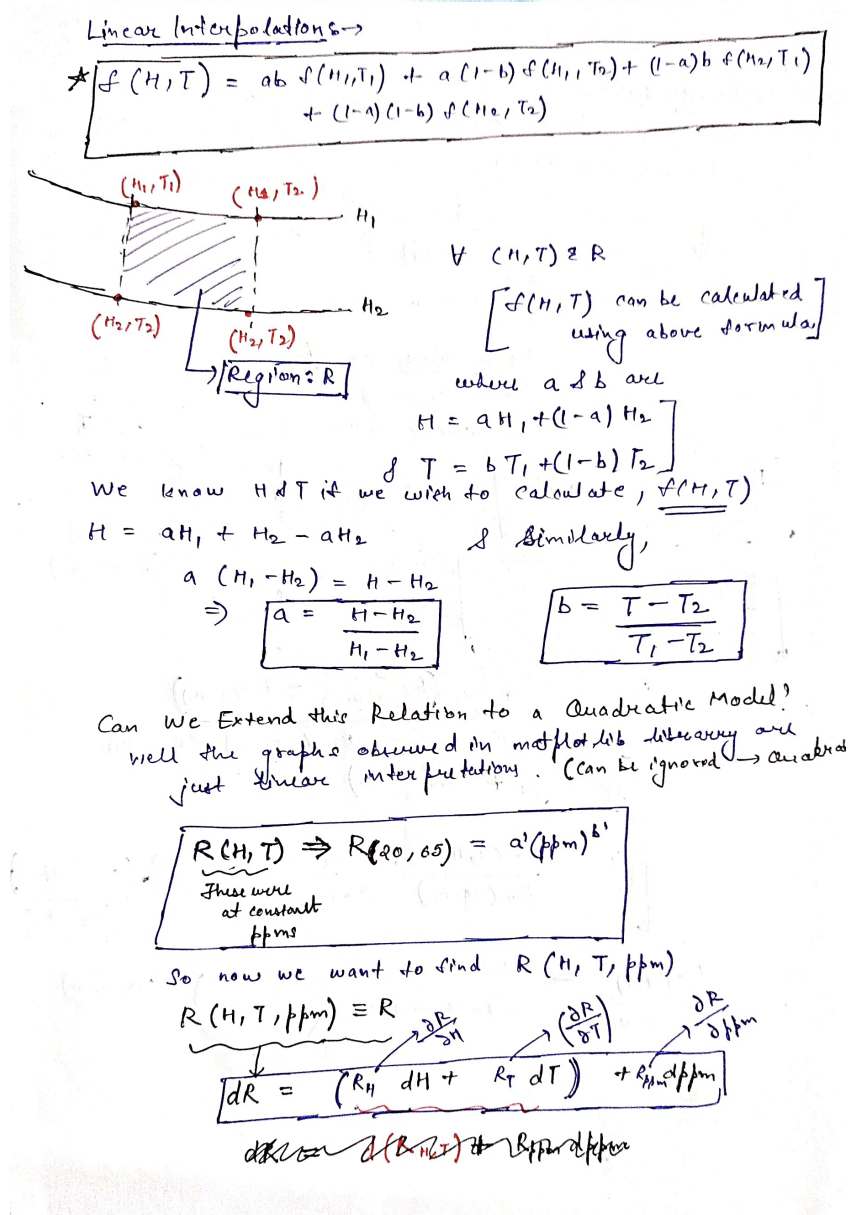 Linear Interpolations→
* f(H,T) = ab f(H₁,T₁) + a(1-b) f(H₁,T₂) + (1-a)b f(H₂,T₁)
+ (1-a)(1-b) f(H₂,T₂)
(H₁,T₁)
(H₁,T₂)
H₁
∀ (H,T) ε R
[f(H,T) can be calculated
using above formula]
H₂
(H₂,T₂)
(H₂,T₂)
Region: R
where a & b are
H = aH₁+(1-a)H₂
& T = bT₁+(1-b)T₂]
We know H & T if we wish to calculate, f(H,T)
H = aH₁ + H₂ - aH₂ & Similarly,
a (H₁-H₂) = H-H₂
⇒ a = (H-H₂)/(H₁-H₂)
b = (T-T₂)/(T₁-T₂)
Can We Extend this Relation to a Quadratic Model?
well the graphs observed in matplotlib library are
just linear interpretations. (can be ignored →
R(H,T) ⇒ R(20,65) = a'(ppm)^b'
These were
at constant
ppms
So now we want to find R(H,T,ppm)
R(H,T,ppm) ≡ R
∂R/∂H
(∂R/∂T)
∂R/∂ppm
dR = (R_H dH + R_T dT) + R_ppm dppm